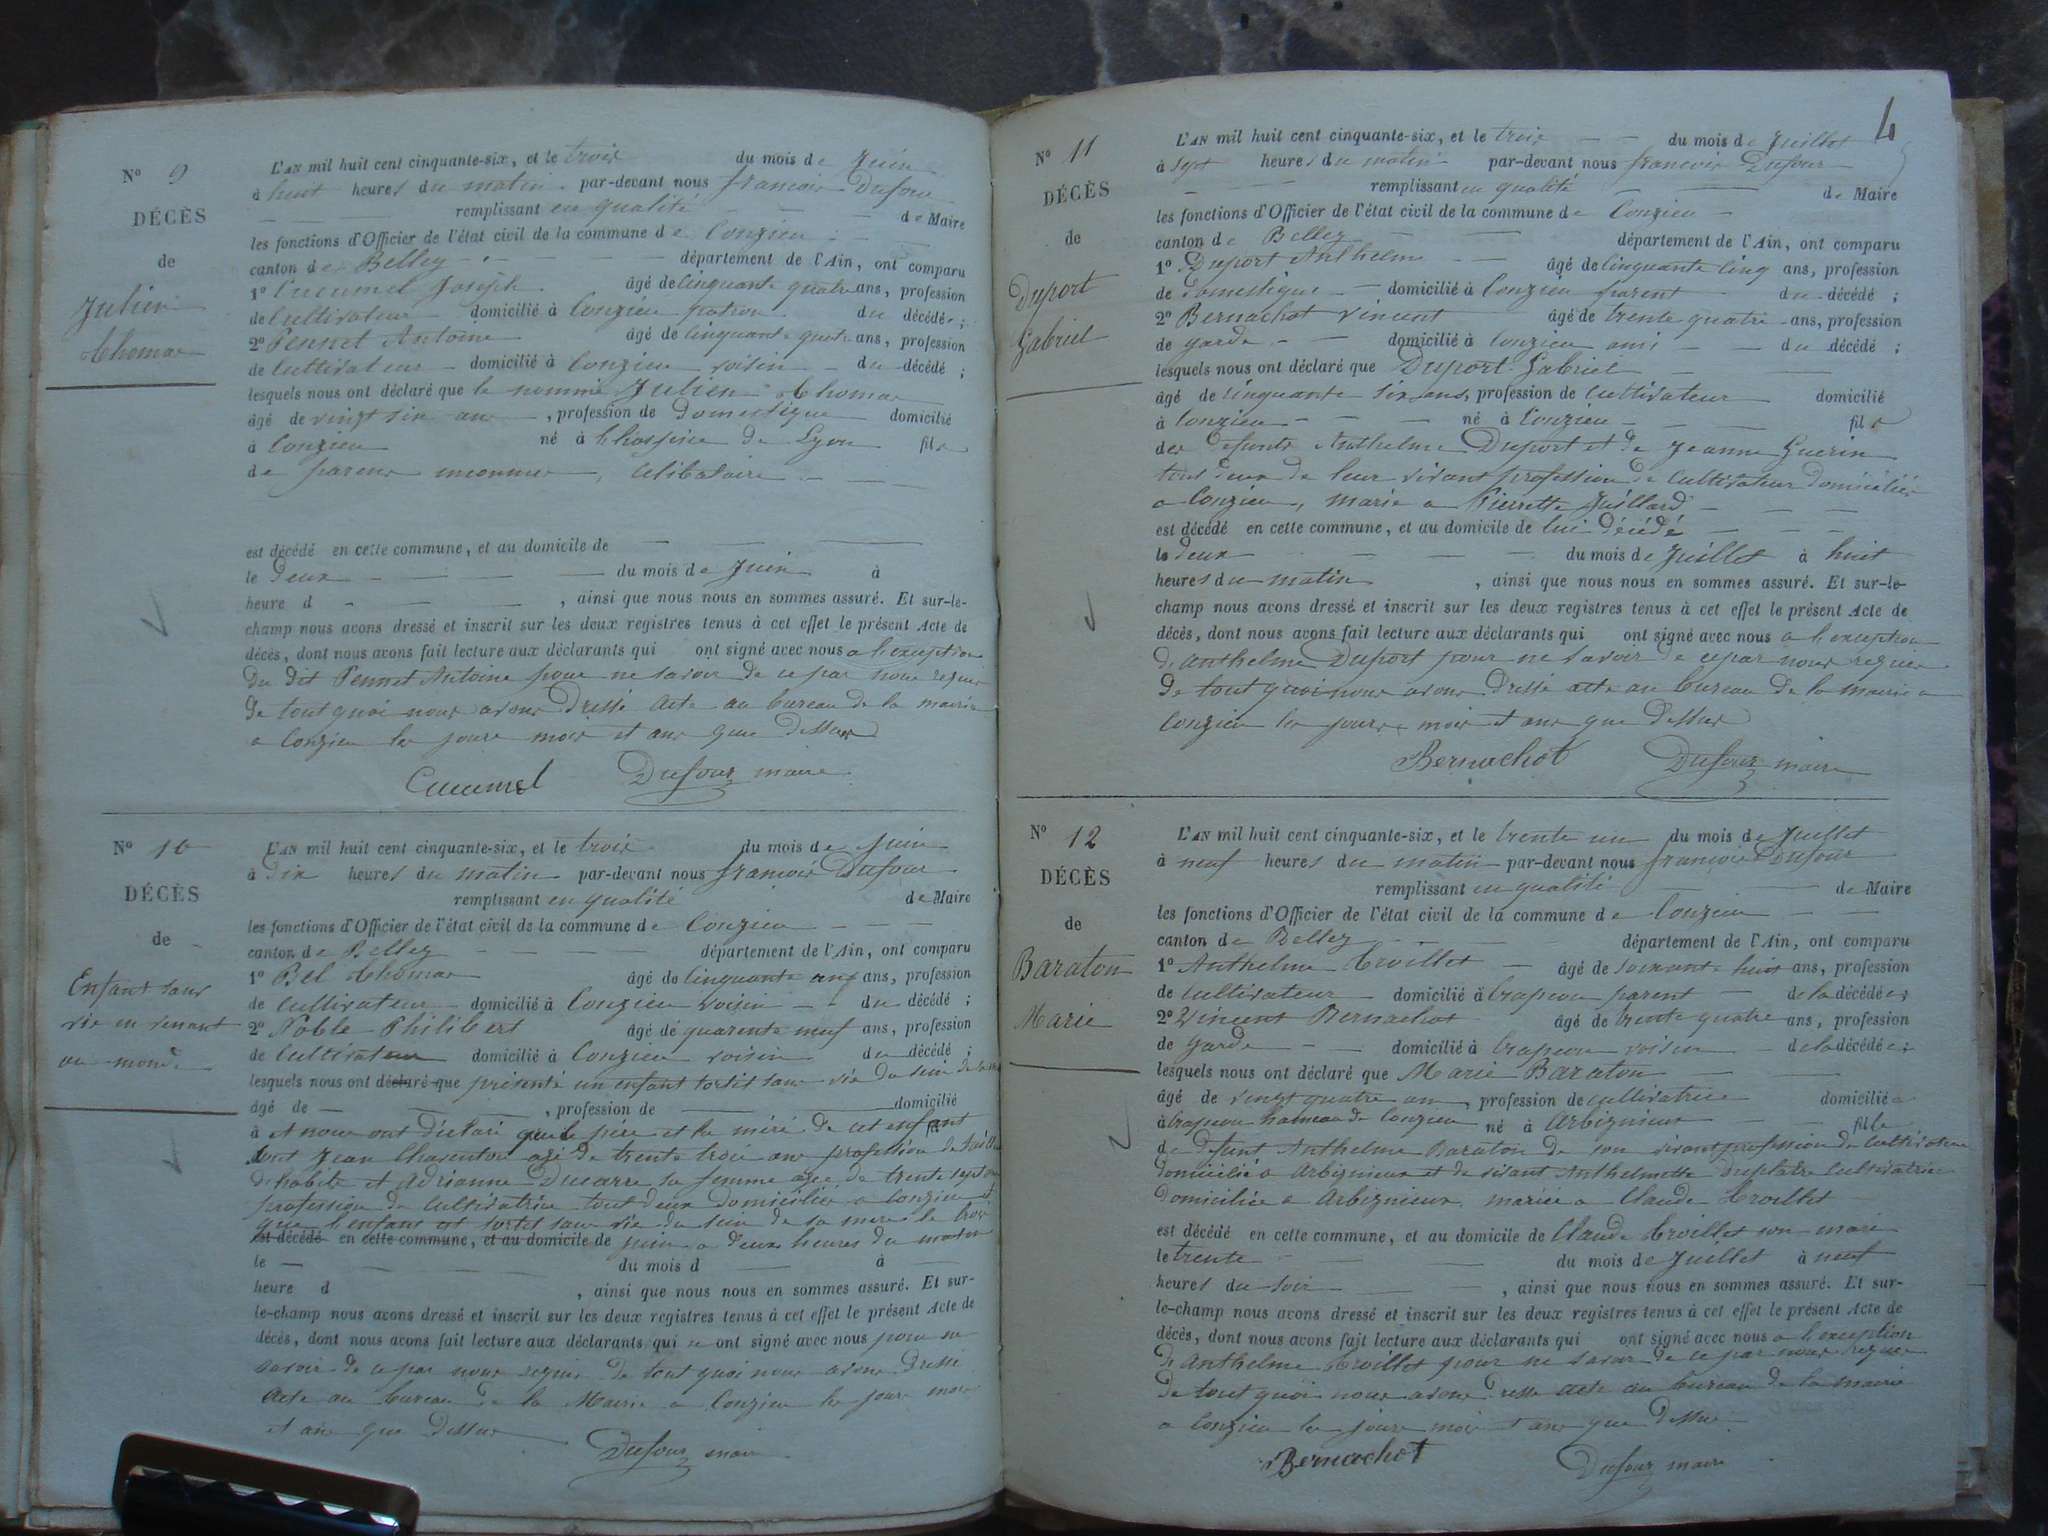 N° 9
DÉCÈS
de
Julien
Thomas
L'AN mil huit cent cinquante-six, et le trois du mois de Juin
à huit heures du matin par-devant nous francois Dufour
remplissant en qualité de Maire
les fonctions d'Officier de l'état civil de la commune de Conzieu
canton de Belley département de l'Ain, ont comparu
1° Cucumel Joseph âgé de Cinquante quatre ans, profession
de Cultivateur domicilié à Conzieu patron du décédé ;
2° Pennet Antoine âgé de Cinquante quatre ans, profession
de Cultivateur domicilié à Conzieu voisin du décédé ;
lesquels nous ont déclaré que le nommé Julien Thomas
âgé de vingt six ans, profession de Domestique domicilié
à Conzieu né à l'hospice de Lyon fils
de parens inconnus, célibataire
est décédé en cette commune, et au domicile de
le Deux du mois de Juin à
heure d , ainsi que nous nous en sommes assuré. Et sur-le-
champ nous avons dressé et inscrit sur les deux registres tenus à cet effet le présent Acte de
décès, dont nous avons fait lecture aux déclarants qui ont signé avec nous a l'exception
du dit Pennet Antoine pour ne savoir de ce par nous requis
De tout quoi nous avons Dressé Acte au bureau de la mairie
a Conzieu les jours mois et ans que Dessus
Cucumel Dufour maire
N° 10
DÉCÈS
de
Enfant sans
vie en venant
au monde
L'AN mil huit cent cinquante-six, et le trois du mois de Juin
à Dix heures du matin par-devant nous francois Dufour
remplissant en qualité de Maire
les fonctions d'Officier de l'état civil de la commune de Conzieu
canton de Belley département de l'Ain, ont comparu
1° Bel Thomas âgé de Cinquante ans, profession
de Cultivateur domicilié à Conzieu voisin du décédé ;
2° Noble Philibert âgé de quarente neuf ans, profession
de Cultivateur domicilié à Conzieu voisin du décédé ;
lesquels nous ont déclaré que présenté un enfant sortit sans vie du sein de
âgé de , profession de domicilié
à et nous ont déclaré que le père et la mère de cet enfant
sont Jean Charenton agé de trente trois ans profession de
d'habits et Adrianne Ducarre sa femme agée de trente sept ans
profession de Cultivatrice tout deux domiciliés a Conzieu et
que l'enfant est sortit sans vie du sein de sa mere le trois
est décédé en cette commune, et au domicile de juin a deux heures du matin
le du mois d à
heure d , ainsi que nous nous en sommes assuré. Et sur-
le-champ nous avons dressé et inscrit sur les deux registres tenus à cet effet le présent Acte de
décès, dont nous avons fait lecture aux déclarants qui n'ont signé avec nous pour ne
savoir de ce par nous requis De tout quoi nous avons Dressé
Acte au bureau de la Mairie a Conzieu les jours mois
et ans que Dessus
Dufour maire
4
N° 11
DÉCÈS
de
Duport
Gabriel
L'AN mil huit cent cinquante-six, et le trois du mois de Juillet
à sept heures du matin par-devant nous francois Dufour
remplissant en qualité de Maire
les fonctions d'Officier de l'état civil de la commune de Conzieu
canton de Belley département de l'Ain, ont comparu
1° Duport Anthelme âgé de Cinquante Cinq ans, profession
de Domestique domicilié à Conzieu parent du décédé ;
2° Bernachot Vincent âgé de trente quatre ans, profession
de garde domicilié à Conzieu ami du décédé ;
lesquels nous ont déclaré que Duport Gabriel
âgé de Cinquante six ans, profession de Cultivateur domicilié
à Conzieu né à Conzieu fils
des defunts Anthelme Duport et de Jeanne Guerin
tout deux de leur vivant profession de Cultivateur domiciliés
a Conzieu, marié a Pierrette Juillard
est décédé en cette commune, et au domicile de lui Décédé
le Deux du mois de Juillet à huit
heures du matin , ainsi que nous nous en sommes assuré. Et sur-le-
champ nous avons dressé et inscrit sur les deux registres tenus à cet effet le présent Acte de
décès, dont nous avons fait lecture aux déclarants qui ont signé avec nous a l'exception
d'Anthelme Duport pour ne savoir de ce par nous requis
De tout quoi nous avons Dressé acte au bureau de la mairie a
Conzieu les jours mois et ans que Dessus
Bernachot Dufour maire
N° 12
DÉCÈS
de
Baraton
Marie
L'AN mil huit cent cinquante-six, et le trente un du mois de Juillet
à neuf heures du matin par-devant nous francois Dufour
remplissant en qualité de Maire
les fonctions d'Officier de l'état civil de la commune de Conzieu
canton de Belley département de l'Ain, ont comparu
1° Anthelme Troillet âgé de soixante huit ans, profession
de Cultivateur domicilié à Crapeou parent de la décédée ;
2° Vincent Bernachot âgé de trente quatre ans, profession
de Garde domicilié à Crapeou voisin de la décédée ;
lesquels nous ont déclaré que Marie Baraton
âgé de vingt quatre ans, profession de Cultivatrice domicilié
à Crapeou hameau de Conzieu né à Arbignieu fille
de defunt Anthelme Baraton de son vivant profession de Cultivateur
domicilié a Arbignieu et de vivant Anthelmette Duplatre Cultivatrice
domiciliée a Arbignieux mariée a Claude Troillet
est décédé en cette commune, et au domicile de Claude Troillet son mari
le trente du mois de Juillet à neuf
heures du soir , ainsi que nous nous en sommes assuré. Et sur-
le-champ nous avons dressé et inscrit sur les deux registres tenus à cet effet le présent Acte de
décès, dont nous avons fait lecture aux déclarants qui ont signé avec nous a l'exception
d'Anthelme Troillet pour ne savoir de ce par nous requis
De tout quoi nous avons Dressé acte au bureau de la mairie
a Conzieu les jours mois et ans que Dessus
Bernachot Dufour maire